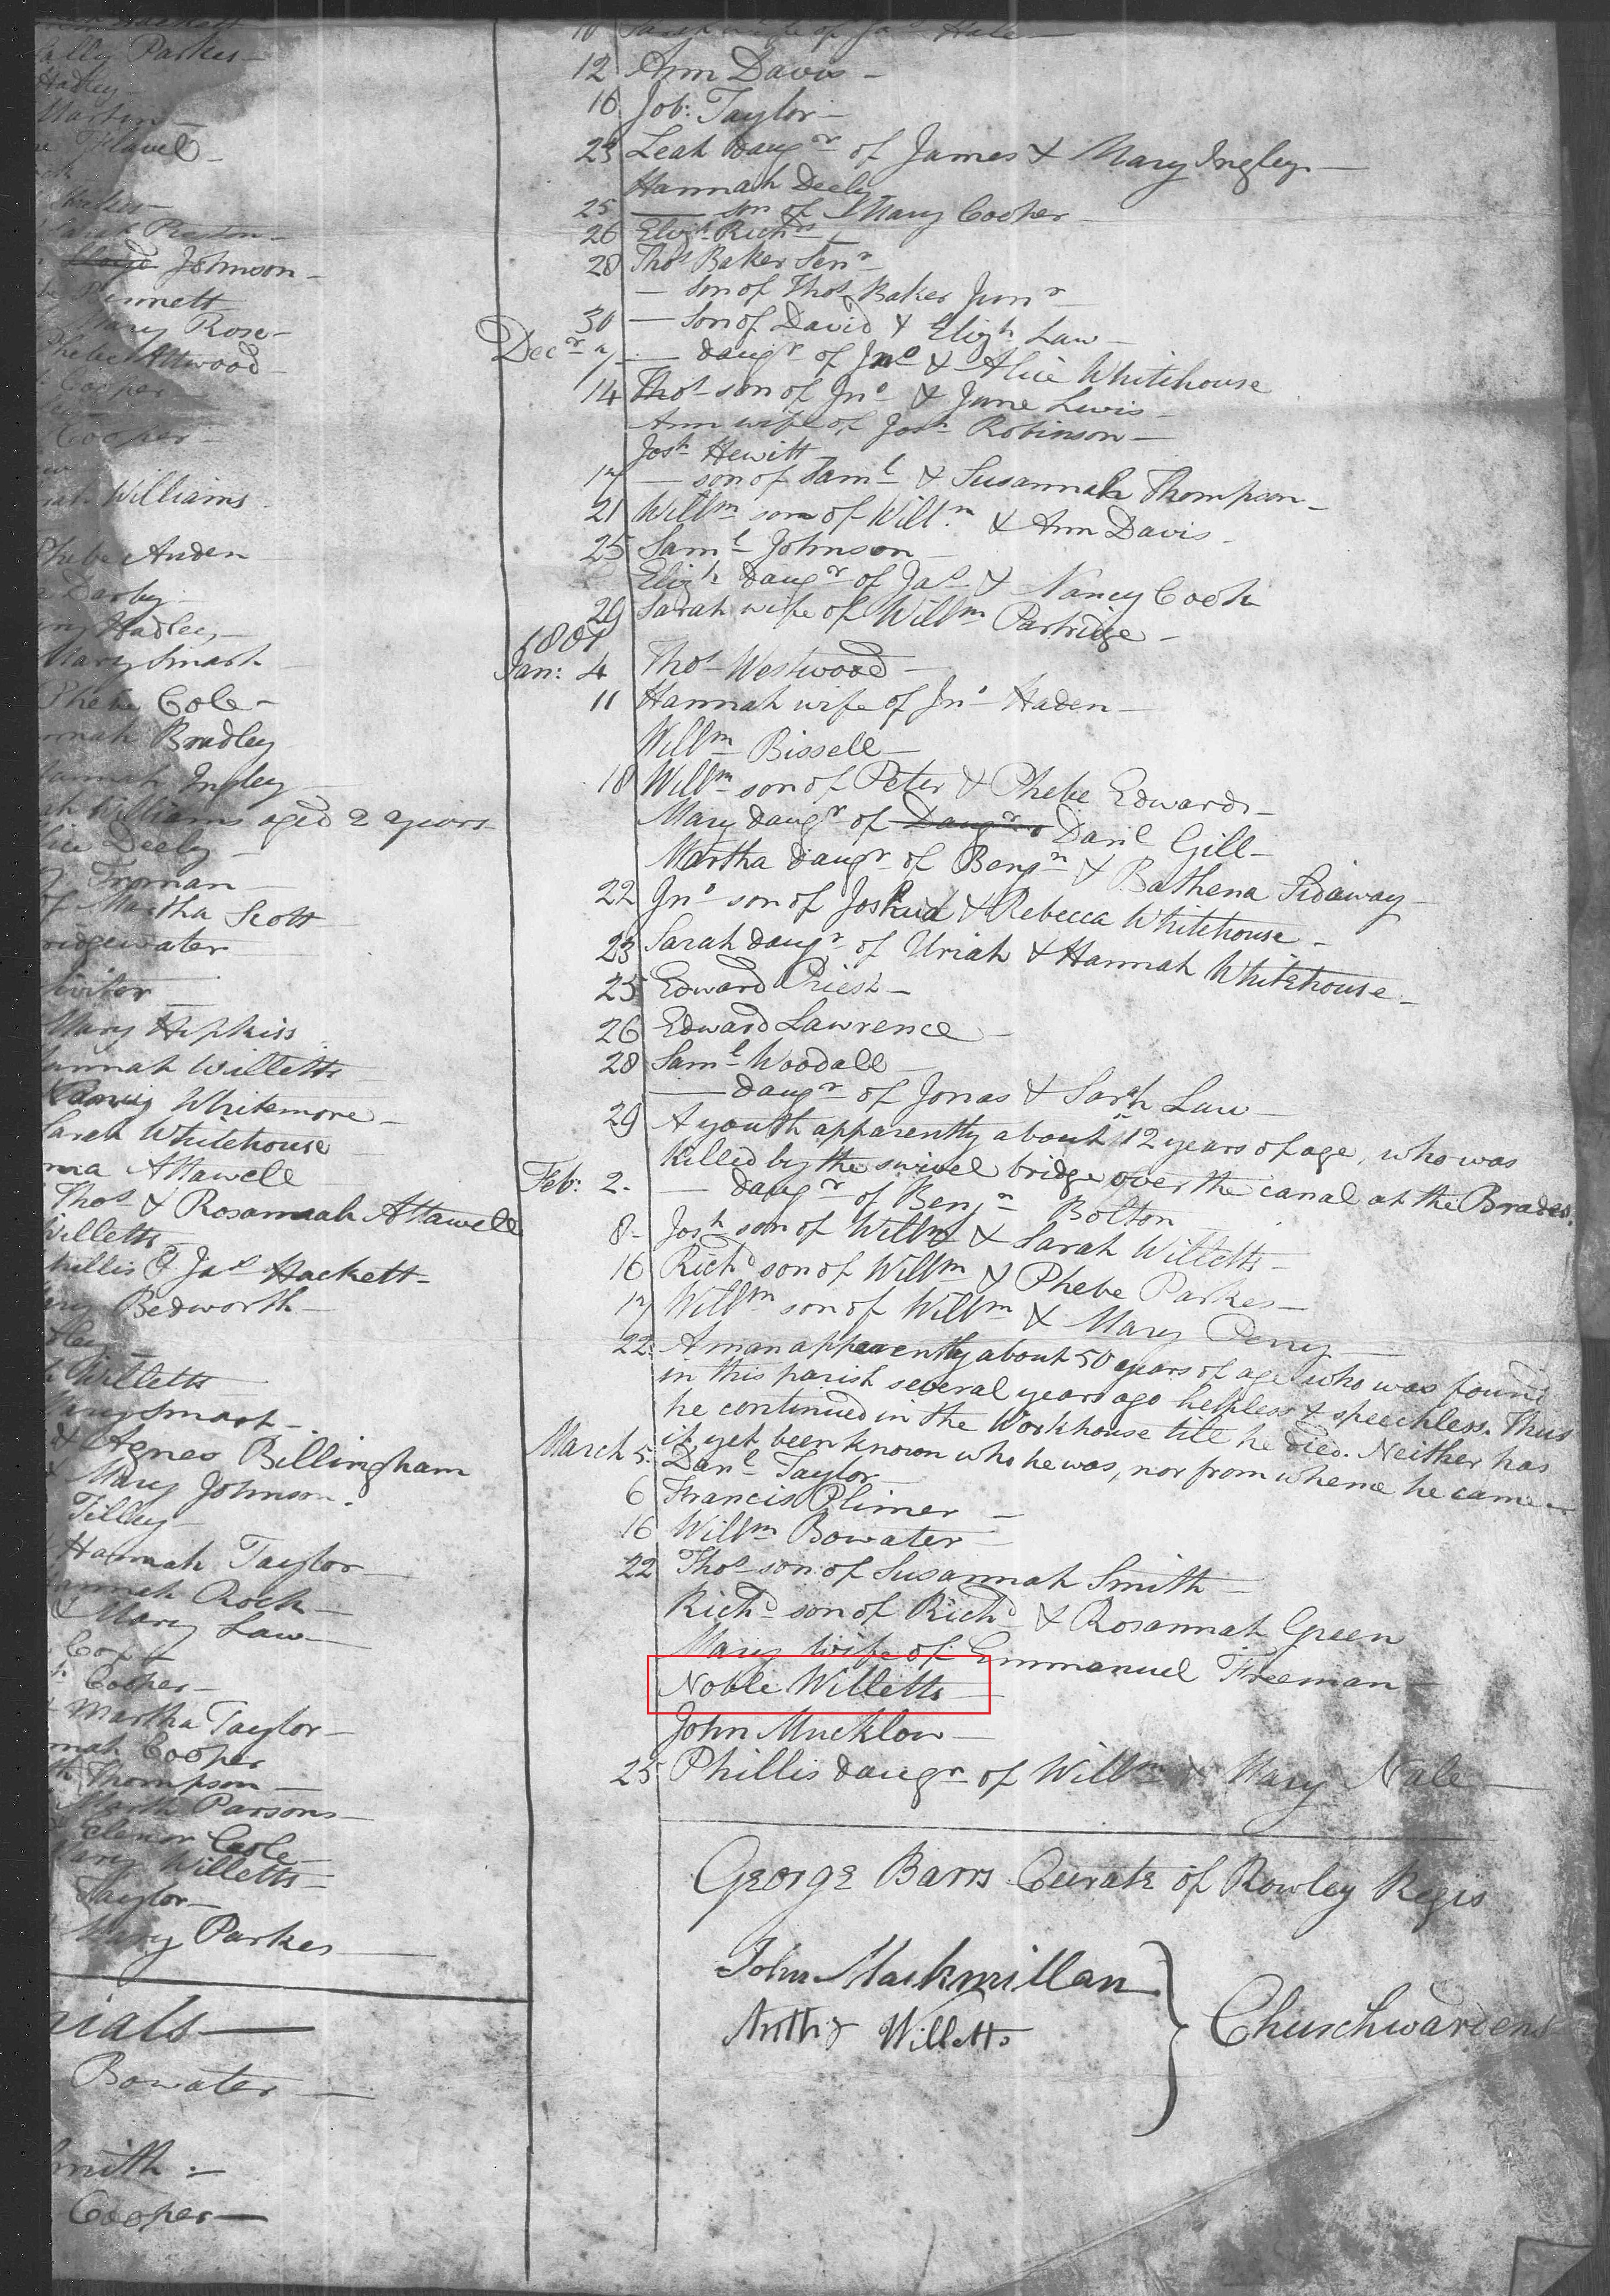 ally Parkes —
Hadley —
Martin —
Flavel —
Stokes —
Sarah Preston —
Johnson —
Bennett
Mary Rose —
Phebe Attwood —
Cooper —
Cooper —
Williams —
Phebe Auden
Darby —
Hadley —
Mary Smart
Phebe Cole —
nnah Bradley
Hannah Ingley
ah Williams aged 2 years
lice Deeley —
Froman —
of Martha Scott —
ridgewater
Mary Hipkiss
annah Willetts —
Whitemore —
Sarah Whitehouse
ma Attawell —
Thos & Rosannah Attawell
Willetts —
hillis & Jas Hackett —
Bedworth —
Willetts
Mary Smart —
& Agnes Billingham
& Mary Johnson —
Tilley —
Hannah Taylor —
annah Rock —
& Mary Law —
Cox &
Cooper —
Martha Taylor —
nah Cooper
th Thompson —
Parsons —
Elenor Cole —
Mary Willetts —
Taylor —
Mary Parkes —
rials —
Bowater —
Smith : —
Cooper —
10 Sarah wife of Jas Hale —
12 Ann Davis —
16 Job: Taylor —
23 Leah Daugr of James & Mary Ingley —
Hannah Deeley
25 — son of Mary Cooper
26 Elizh Richds
28 Thos Baker Senr —
— son of Thos Baker Junr —
30 — son of David & Elizh Law —
Decr 7 — daugr of Jno & Alice Whitehouse
14 Thos son of Jno & Jane Lewis —
Ann wife of Josh Robinson —
Josh Hewitt —
17 — son of Saml & Susannah Thompson —
21 Willm son of Willm & Ann Davis —
25 Saml Johnson —
Elizh daugr of Jas & Nancy Cook
29 Sarah wife of Willm Partridge —
1801
Jan: 4 Thos Westwood —
11 Hannah wife of Jno Haden —
Willm Bissell —
18 Willm son of Peter & Phebe Edwards —
Mary daugr of Daugr Danl Gill —
Martha daugr of Benjn & Bathena Sidaway —
22 Jno son of Joshua & Rebecca Whitehouse —
23 Sarah daugr of Uriah & Hannah Whitehouse —
25 Edward Priest —
26 Edward Lawrence —
28 Saml Woodall —
— daugr of Jonas & Sarah Law —
29 A youth apparently about 12 years of age, who was
killed by the swivel bridge over the canal at the Brades.
Feb: 2. — daugr of Benjn Bolton
8 — Josh son of Willm & Sarah Willetts —
16 Richd son of Willm & Phebe Parkes —
17 Willm son of Willm & Mary Perry —
22. A man apparently about 50 years of age who was found
in this parish several years ago helpless & speechless. Thus
he continued in the Workhouse till he died. Neither has
it yet been known who he was, nor from whence he came —
March 5. Danl Taylor —
6 Francis Plimer —
16 Willm Bowater —
22 Thos son of Susannah Smith —
Richd son of Richd & Rosannah Green
Mary wife of Emmanuel Freeman —
Noble Willetts —
John Mucklow —
25 Phillis daugr of Willm & Mary Nale —
George Barrs Curate of Rowley Regis
John Mackmillan
Willetts
Churchwardens